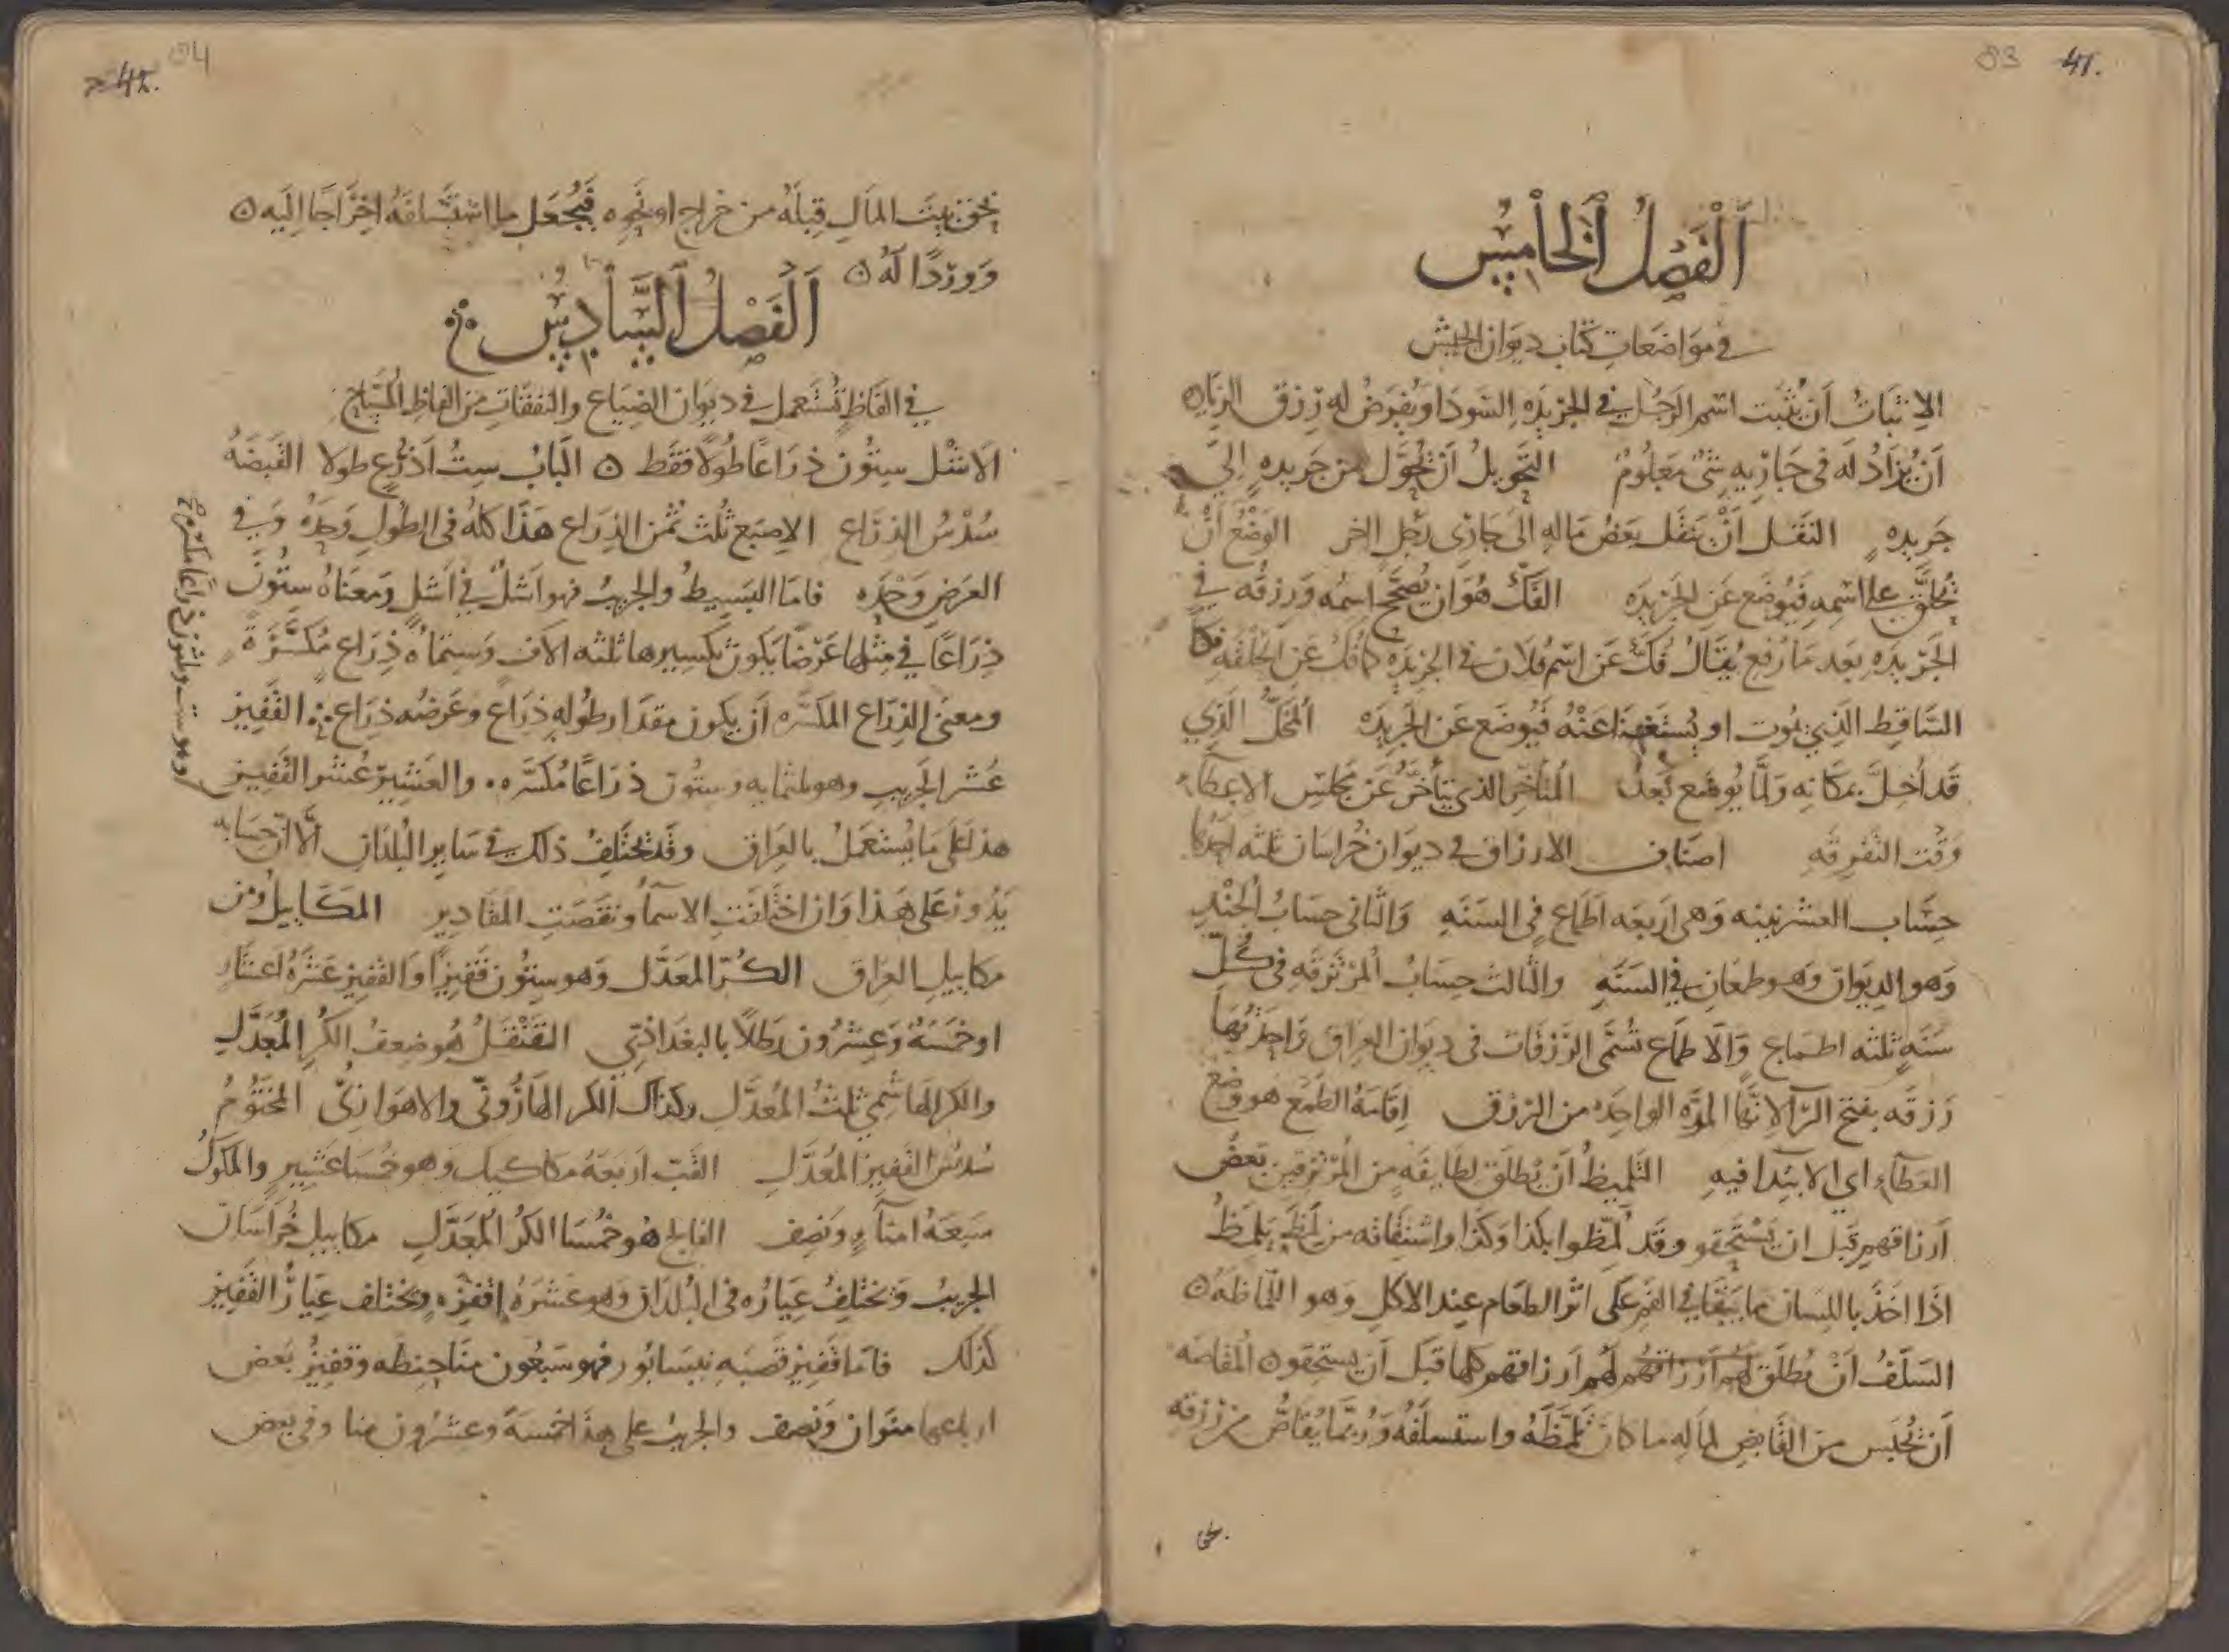 83 41.
اَلْفَصْلُ اَلْخَامِسُ
في مَوَاضَعَاتِ كُتَّابِ دِيوَان الجَيْش
الاِثبَاتُ اَن يُثبَت اسْم الرَجُل في الجَرِيدَه السَودَا وَيُفرَضُ لَه رِزق الزيَاده
اَن يُزَادُ لَه في جَارِيه شَىْ مَعلُومٌ التَحَويلُ اَن يُحَوَّل مِن جَريده اِلىَ
جَريده النَقل اَنْ يَنقَل بَعضُ مَاله اِلىَ جَارى رَجُل اخر الوَضْعُ اَنْ
يُحَلَّق على اسْمِه فَيُوضَع عَن الجَرِيدَه الفَكّ هُوَ ان يُصَحَّح اسمُه وَرِزقُه في
الجَرِيدَه بَعد مَا رُفع يُقَالُ فُكَّ عَن اسْم فلان في الجَرِيدَه كما فُكّ عَن الحلقَه
السَّاقِط الَّذِي يمُوت او يُسْتَغنَا عَنْهُ فَيُوضَع عَن الجَرِيدَه المُخَلُّ الَّذِي
قَد اُخِلَّ بمَكَانِه وَلمَّا يُوضَع بَعدُ المُتأخِّر الذي يَتأَخَّرُ عَن مَجلس الاعطَاء
وَقت التَفرِقَه اصنَاف الارزَاق في ديوَان خُرَاسَان ثلثه احَدُها
حِسَاب العشرينيه وَهى اربَعَه اَطمَاع في السَنَه وَالثَانى حِسَابُ الجُنْدِ
وَهو الدِيوَان وَهو طمعَان في السَنَه وَالثَالث حِسَابُ المُرْتَزقَه في كُلّ
سَنَه ثلثه اطماع وَالاطمَاع تُسَمَّى الرَزقَات في دِيوَان العِرَاق وَاحِدَتُهَا
رَزقَه بفتح الرَّا لانها المرَّه الواحِدَه من الرزق اِقَامَهُ الطَمَع هو وَضع
العَطَآء اى الابتدا فيه التَلميظُ اَن يُطلَق لطَايفَه من المُرْتَزقين بعضُ
اَرزاقهم قَبل ان يَسْتَحِقو وقد لُمِّظوا بكذا وَكذَا واشتقَاقه من لَمَظ يَلمُظُ
اذَا اخَذ بِاللِسَان مَا يَبقَا في الفَم عَلَى اثر الطعَام عِند الاكل وَهو اللّمَاظه ه
السَلَفُ اَنْ يُطلَق لَهُم اَرزَاقهُم لهُم اَرزاقهم كلها قَبل اَن يستحقو ه المُقاصَّه
اَن يُحبَس مِن القَابِض لماله مَا كان تَلَمَّظَهُ واستسلَفَهُ وَرُبَّمَا يُقَاصُّ من رزقه
42. 84
بحَق بَيت المَال قِبلَهُ من خراج او نَحوِه فَيُجعَل ما اسْتَسلَفَهُ اخرَاجًا اِلَيه ه
وَوردًا لَهُ ه
اَلفَصْلُ السَّادِسُ
في الفَاظٍ تُستَعمل في ديوَان الضِيَاع والنَفقَات من الفاظِ المُسَّاح
الاَشْل سِتُون ذِرَاعًا طُولًا فَقَط ه البَابُ سِتُ اَذرُعٍ طولا القَبضَهُ
سُدْسُ الذِرَاع الاصبَع ثُلث ثُمن الذِرَاع هَذَا كلُهُ في الطول وَحدَهُ وَفي
العَرض وَحْدَه فامَا البَسِيطُ والجريبُ فهو اَشلٌ في اَشلٍ وَمعنَاهُ ستُّونَ
ذِرَاعًا في مِثلهَا عَرْضًا يَكون تكسِيرها ثلثه الاَف وَستمَائه ذِرَاع مُكَسَّرَةً
ومعنى الذِرَاع المكسَّره اَن يكون مِقدَار طُولِه ذِرَاع وعَرضُه ذِرَاع القَفِيز
عُشر الجَرِيب وهو ثلثمايه وستُون ذرَاعًا مُكسَّره والعَشِيرُ عُشر القَفِيز
وهو ست وثلثون ذراعًا مكسره صح
هذا عَلَى مَا يُستَعمَلُ بالعراق وقَد يختَلفُ ذلك في سَاير البُلدَان الَّا ان حِسَابه
يَدُور عَلى هَذا وَان اختَلفَت الاسمآُ ونَقَصَت المقادير المكَاييلُ وَمن
مكاييل العراق الكُرّ المعَدَّل وَهو سِتُون قَفِيزًا وَالقَفِيز عَشَرَةُ اعشَار
او خمسَهٌ وَعِشرُون رَطلًا بالبَغدَاذِي القَنقَلُ هُو ضِعفُ الكُر المُعَدَّل
والكر الهَاشمي ثلث المُعدَّل وكذلك الكر الهَارُونيّ والاهوَازِيّ المَختُومُ
سُدس القَفِيز المُعَدَّل القَب اَربَعَهُ مكاكيك وَهو خُمسَا عَشِيرٍ والمكوك
سَبعَهُ امنَآءٍ وَنصف الفالج هُو خُمْسَا الكُر المُعَدَّل مكاييل خُراسَان
الجريبُ وَيختلِفُ عِيَارُه في البُلدَان وَهو عَشرَهُ اقفِزَه وَيَختلف عِيَارُ القَفِيز
كذلك فامَا قَفِيز قَصَبَه نيسَابُور فهو سَبعُون منًا حِنطَه وقفيزُ بَعض
ارباعها منَوان وَنصف والجريب على هذَا خمسَةٌ وعشرُون منا وفي بعض